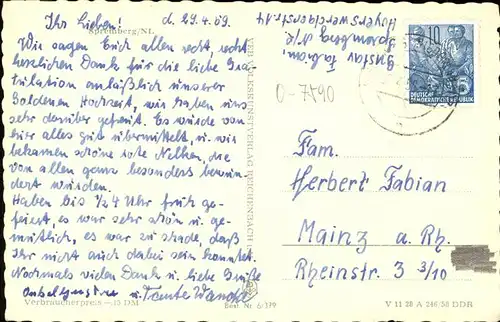 Ihr Lieben! d. 29.4.59.
Spremberg/NL
Wir sagen Euch allen recht recht
herzlichen Dank für die liebe Gra-
tulation anläßlich unserer
Goldenen Hochzeit, wir haben uns
sehr darüber gefreut. Es wurde von
hier alles gut übermittelt, u. wir
bekamen schöne rote Nelken, die
von allen ganz besonders bewun-
dert wurden.
Haben bis 1/2 4 Uhr früh ge-
feiert, es war sehr schön u. ge-
mütlich, es war zu schade, daß
Ihr nicht auch dabei sein konntet.
Nochmals vielen Dank u. liebe Grüße
Onkel Gustav u. Tante
Verbraucherpreis —.15 DM
Best. Nr. 6/379
VER VOLKSKUNSTVERLAG REICHENBACH
Gustav Fabian
Spremberg N/L.
Hoyerswerdaerstr. 14
0-7590
10
5
DEUTSCHE
DEMOKRATISCHE REPUBLIK
Fam.
Herbert Fabian
Mainz a. Rh.
Rheinstr. 3 3/10
V 11 28 A 246/58 DDR